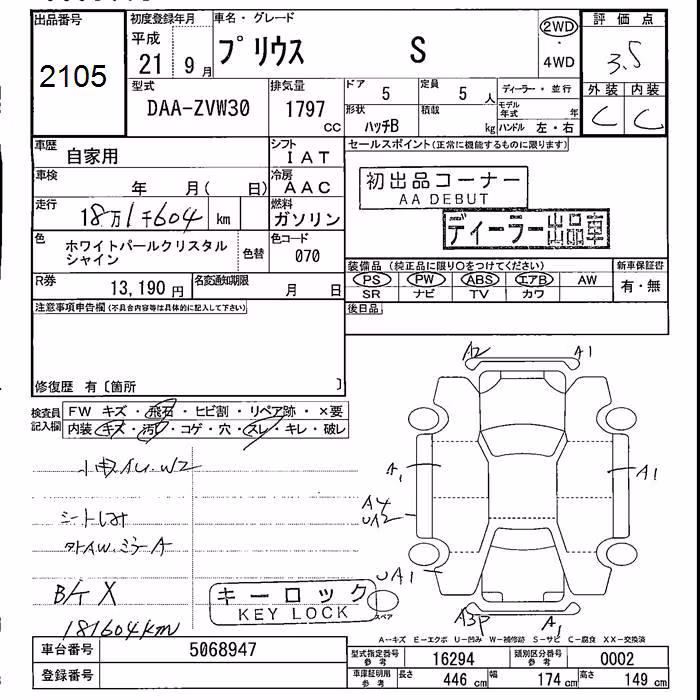 出品番号
2105
初度登録年月
平成
21 9月
車名・グレード
プリウス S
2WD
・
4WD
評価点
3.5
外装 内装
C C
型式
DAA-ZVW30
排気量
1797 CC
ドア 5
定員 5 人
形状 ハッチB
積載 kg
ディーラー・並行
モデル年式 年
ハンドル 左・右
車歴 自家用
シフト IAT
車検 年 月( 日)
冷房 AAC
走行 18万1千604 km
燃料 ガソリン
色 ホワイトパールクリスタル
シャイン
色替
色コード 070
R券 13,190 円
名変通知期限 月 日
セールスポイント(正常に機能するものに限ります)
初出品コーナー
AA DEBUT
ディーラー出品車
装備品 (純正品に限り○をつけてください)
PS PW ABS エアB AW
SR ナビ TV カワ
新車保証書
有・無
後日品
注意事項申告欄(不具合内容等は具体的に記入して下さい)
修復歴 有〔箇所 〕
検査員
記入欄
FW キズ・飛石・ヒビ割・リペア跡・×要
内装・キズ・汚レ・コゲ・穴・スレ・キレ・破レ
W2
シート
ミラーA
X
181604km
キーロック
KEY LOCK
A2 A1
A1 A1
A4
UA2
UA1
スペア
A3P A1
A-キズ E-エクボ U-凹み W-補修跡 S-サビ C-腐食 XX-交換済
車台番号 5068947
登録番号
型式指定番号
参考 16294
類別区分番号
参考 0002
車庫証明用
参考 長さ 446 cm 幅 174 cm 高さ 149 cm